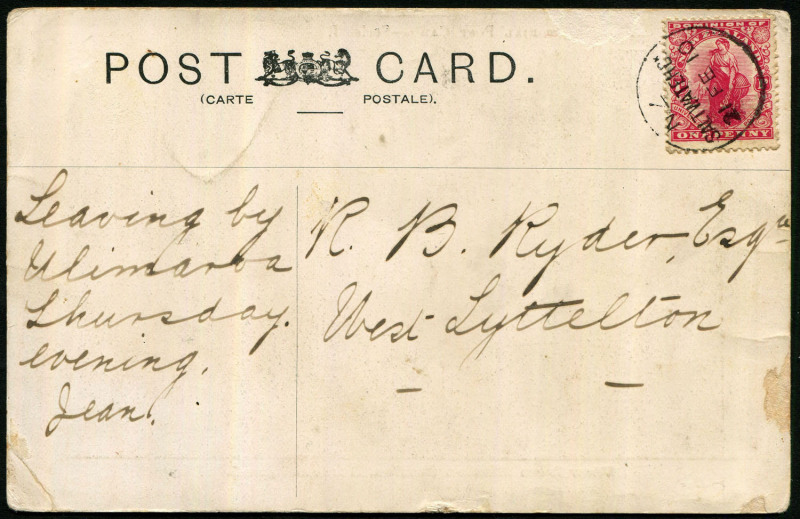 POST CARD.
(CARTE POSTALE).
DOMINION OF
ONE PENNY
N.Z
21 FE 10
Leaving by
Ulimaroa
Thursday.
evening.
Jean.
R. B. Ryder, Esqre
West Lyttelton